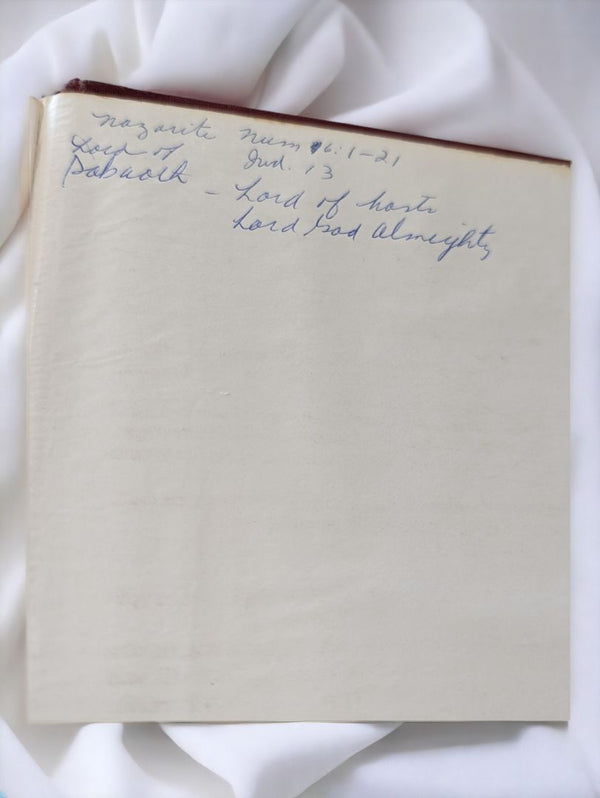 Nazarite Num 6:1-21
Jud. 13
Lord of
Sabaoth - Lord of hosts
Lord God Almighty